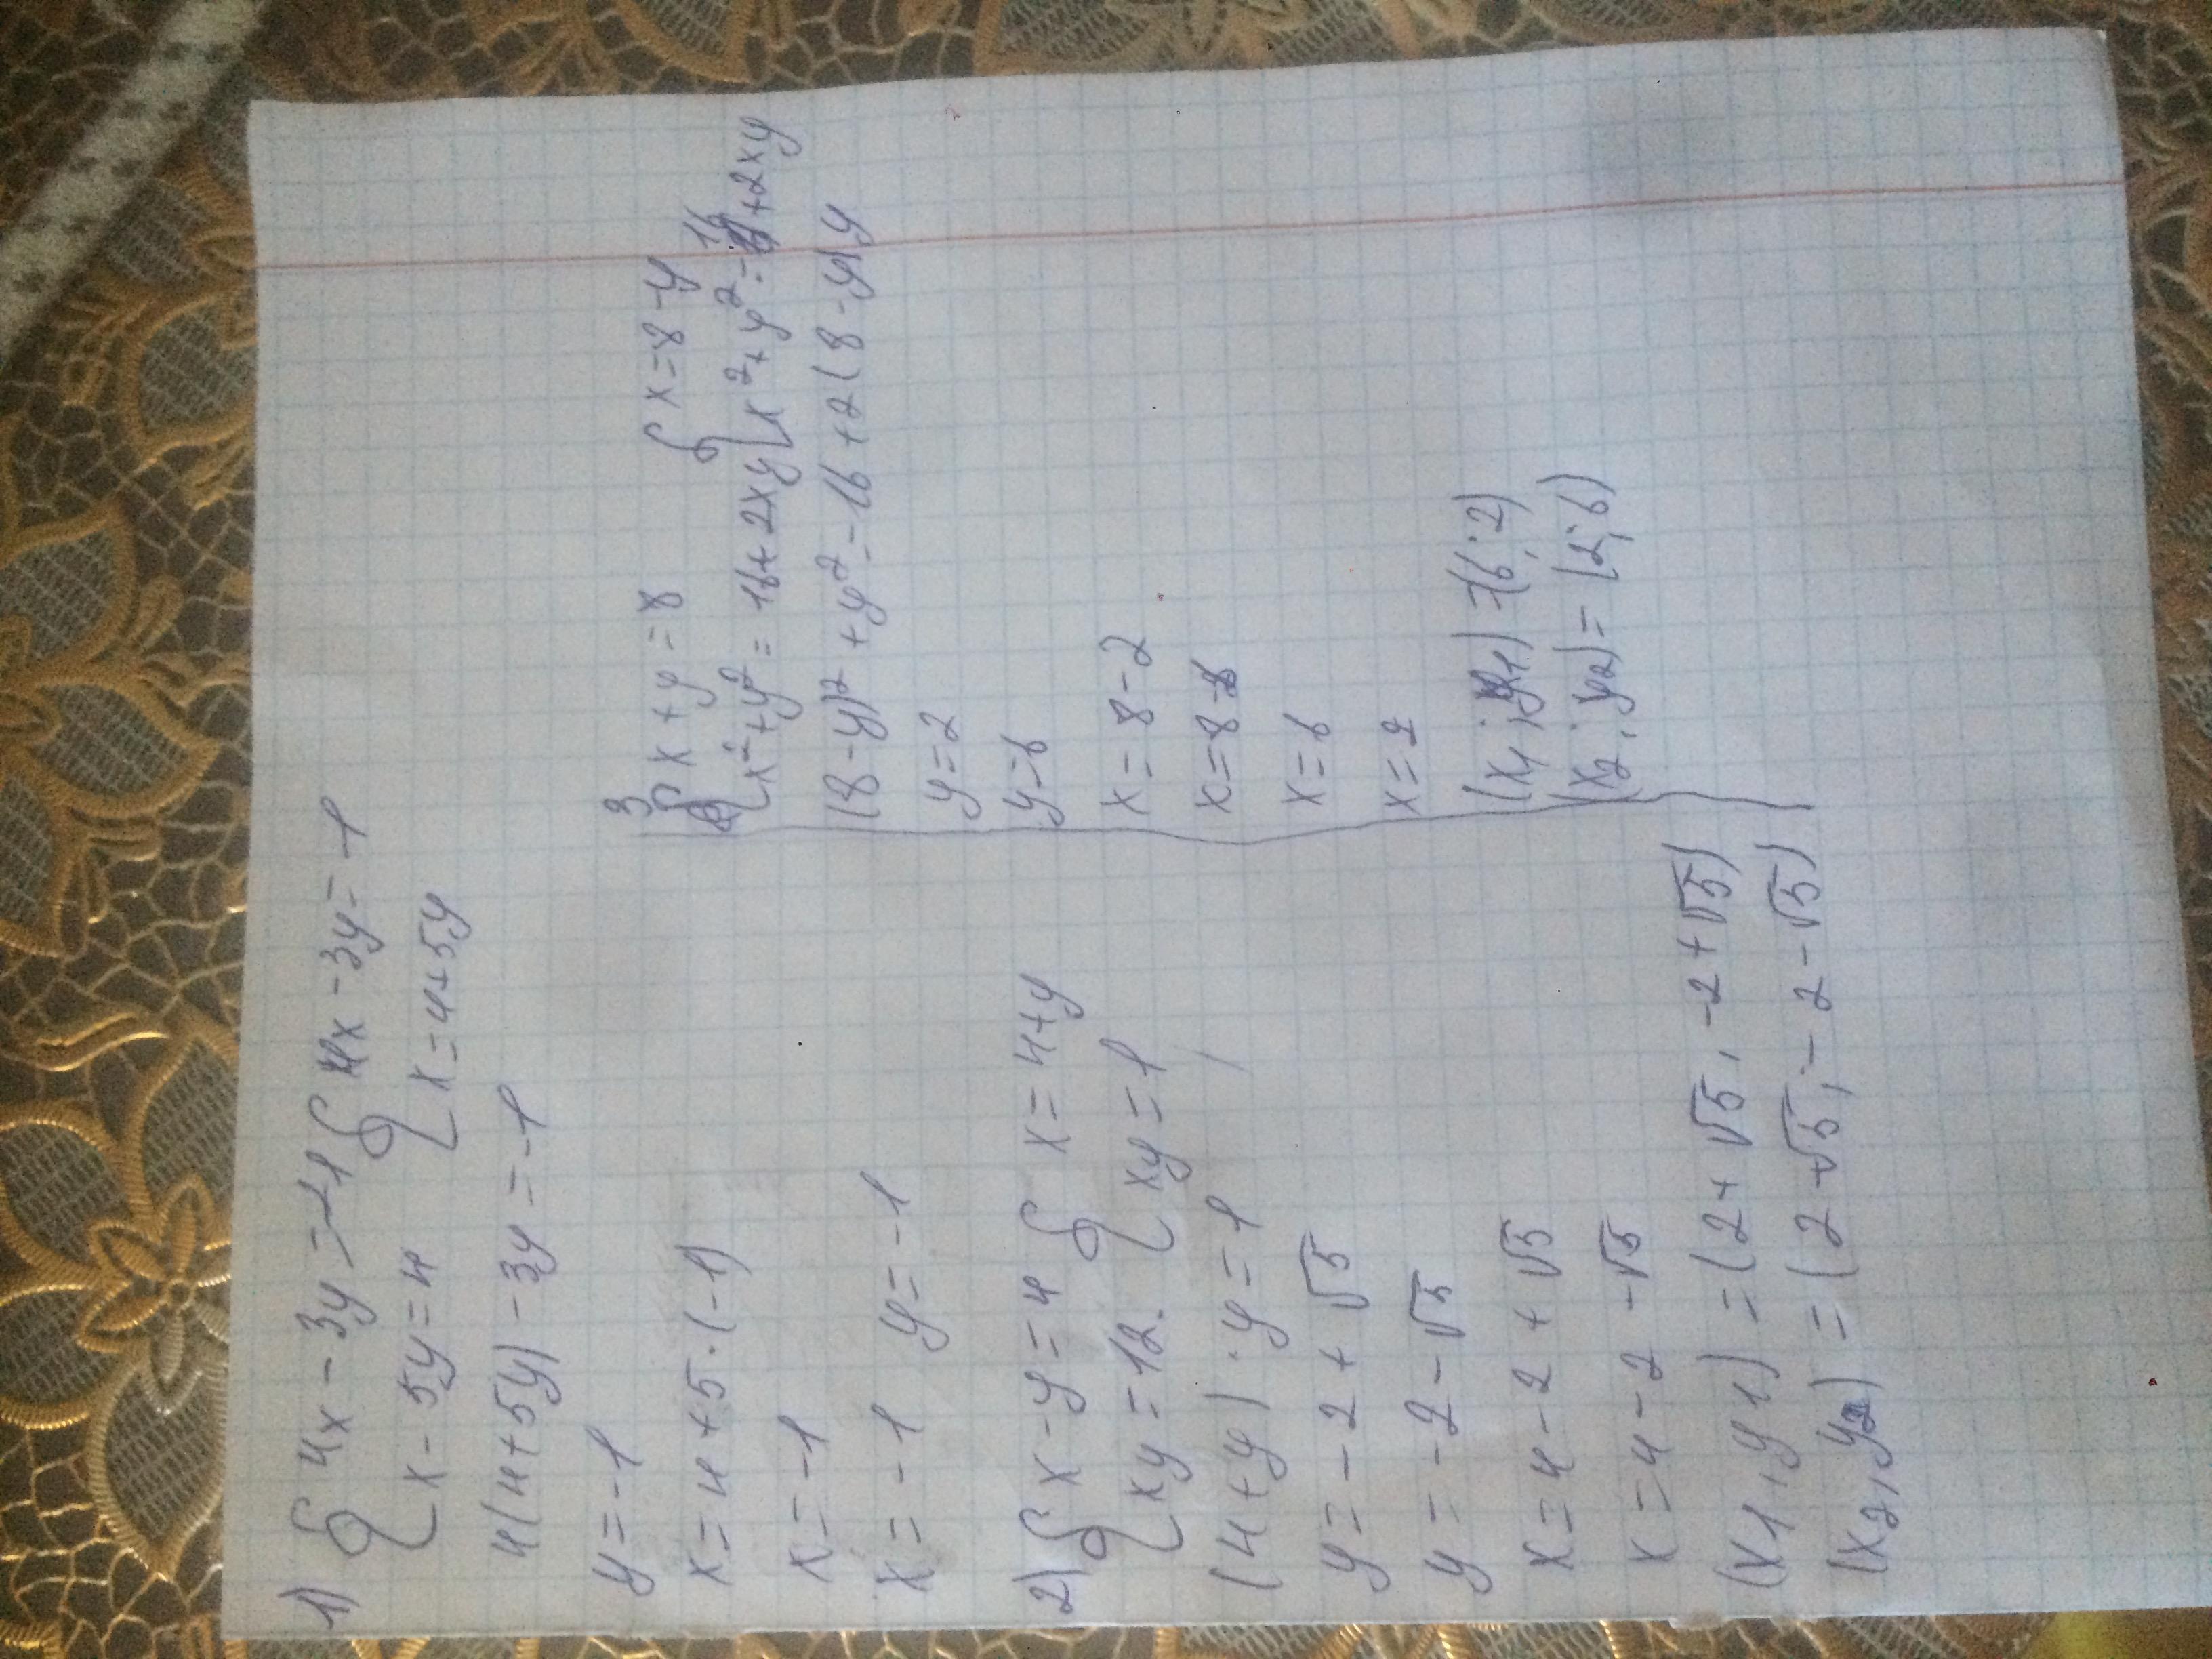 1) { 4x - 3y = -1 { 4x - 3y = -1
{ x - 5y = 4 { x = 4+5y
4(4+5y) - 3y = -1
y = -1
x = 4+5·(-1)
x = -1
x = -1 y = -1
2) { x - y = 4 { x = 4+y
{ xy = 12. { xy = 1
(4+y)·y = 1
y = -2 + √5
y = -2 - √5
x = 4 - 2 + √5
x = 4 - 2 - √5
(x1, y1) = (2+√5, -2+√5)
(x2, y2) = (2+√5; -2-√5)
3 { x + y = 8 { x = 8 - y
{ x²+y² = 16+2xy { x²+y² = 16+2xy
(8-y)²+y² = 16+2(8-y)y
y = 2
y = 6
x = 8 - 2
x = 8 - 6
x = 6
x = 2
(x1; y1) = (6; 2)
(x2; y2) = (2; 6)